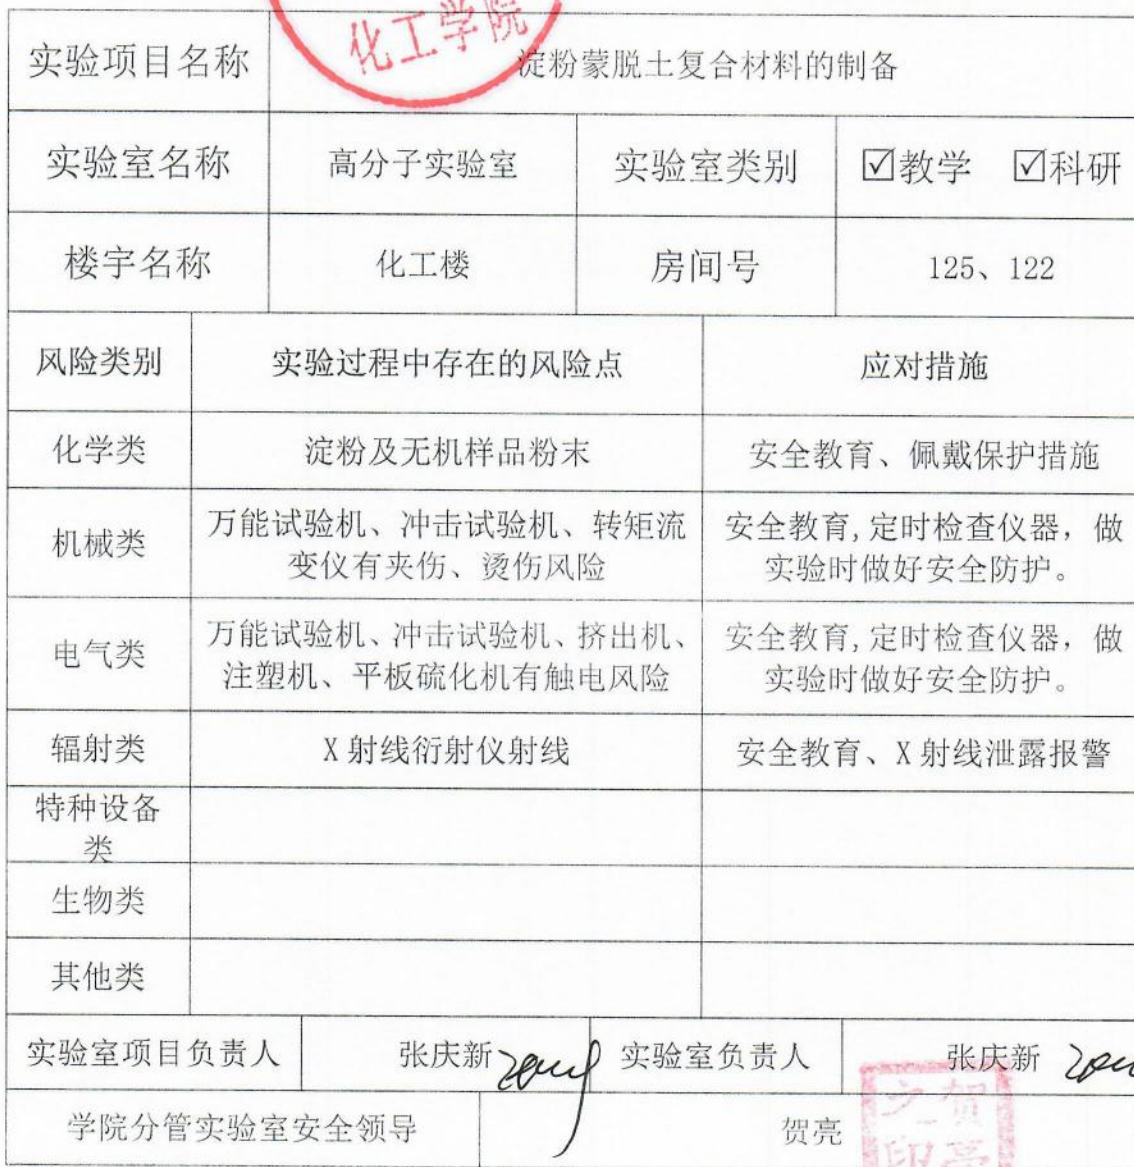 化工学院
实验项目名称 淀粉蒙脱土复合材料的制备
实验室名称 高分子实验室 实验室类别 ☑教学 ☑科研
楼宇名称 化工楼 房间号 125、122
风险类别 实验过程中存在的风险点 应对措施
化学类 淀粉及无机样品粉末 安全教育、佩戴保护措施
机械类 万能试验机、冲击试验机、转矩流
变仪有夹伤、烫伤风险
安全教育,定时检查仪器，做
实验时做好安全防护。
电气类 万能试验机、冲击试验机、挤出机、
注塑机、平板硫化机有触电风险
安全教育,定时检查仪器，做
实验时做好安全防护。
辐射类 X射线衍射仪射线 安全教育、X射线泄露报警
特种设备
类
生物类
其他类
实验室项目负责人 张庆新 实验室负责人 张庆新
学院分管实验室安全领导 贺亮
贺亮
之印